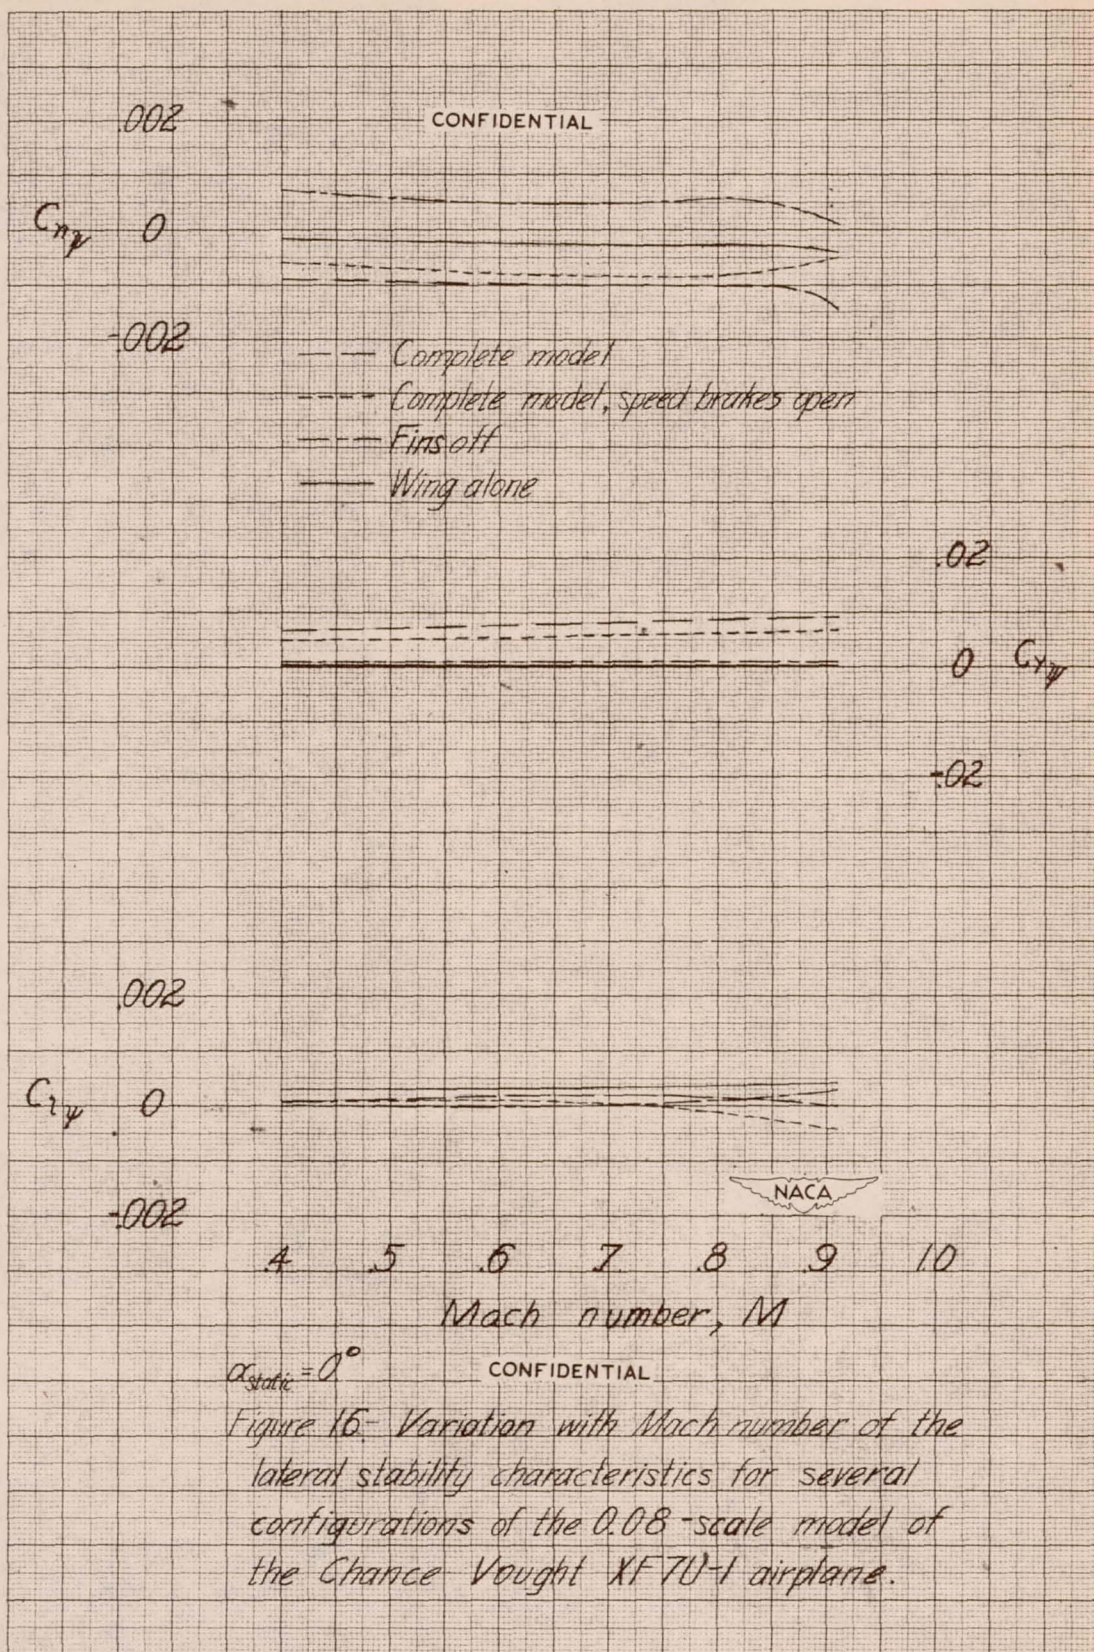 .002
CONFIDENTIAL
Cnψ 0
-.002
Complete model
Complete model, speed brakes open
Fins off
Wing alone
.02
0 CYψ
-.02
.002
Clψ 0
NACA
-.002
.4 .5 .6 .7 .8 .9 1.0
Mach number, M
αstatic = 0°
CONFIDENTIAL
Figure 16.- Variation with Mach number of the
lateral stability characteristics for several
configurations of the 0.08-scale model of
the Chance Vought XF7U-1 airplane.